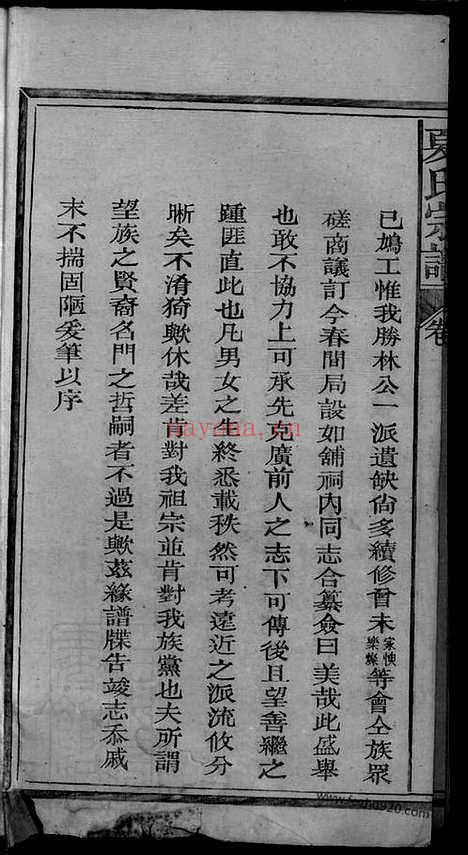 夏氏宗譜
卷
已鳩工惟我勝林公一派遺缺尙多續修曾未家樂懊燦等會仝族眾
磋商議訂今春間局設如舖祠內同志合纂僉曰美哉此盛舉
也敢不協力上可承先克廣前人之志下可傳後且望善繼之
踵匪直此也凡男女之生終悉載秩然可考遠近之派流攸分
晰矣不淆猗歟休哉差肯對我祖宗並肯對我族黨也夫所謂
望族之賢裔名門之哲嗣者不過是歟茲緣譜牒告竣志忝戚
末不揣固陋爰筆以序
nayona.cn